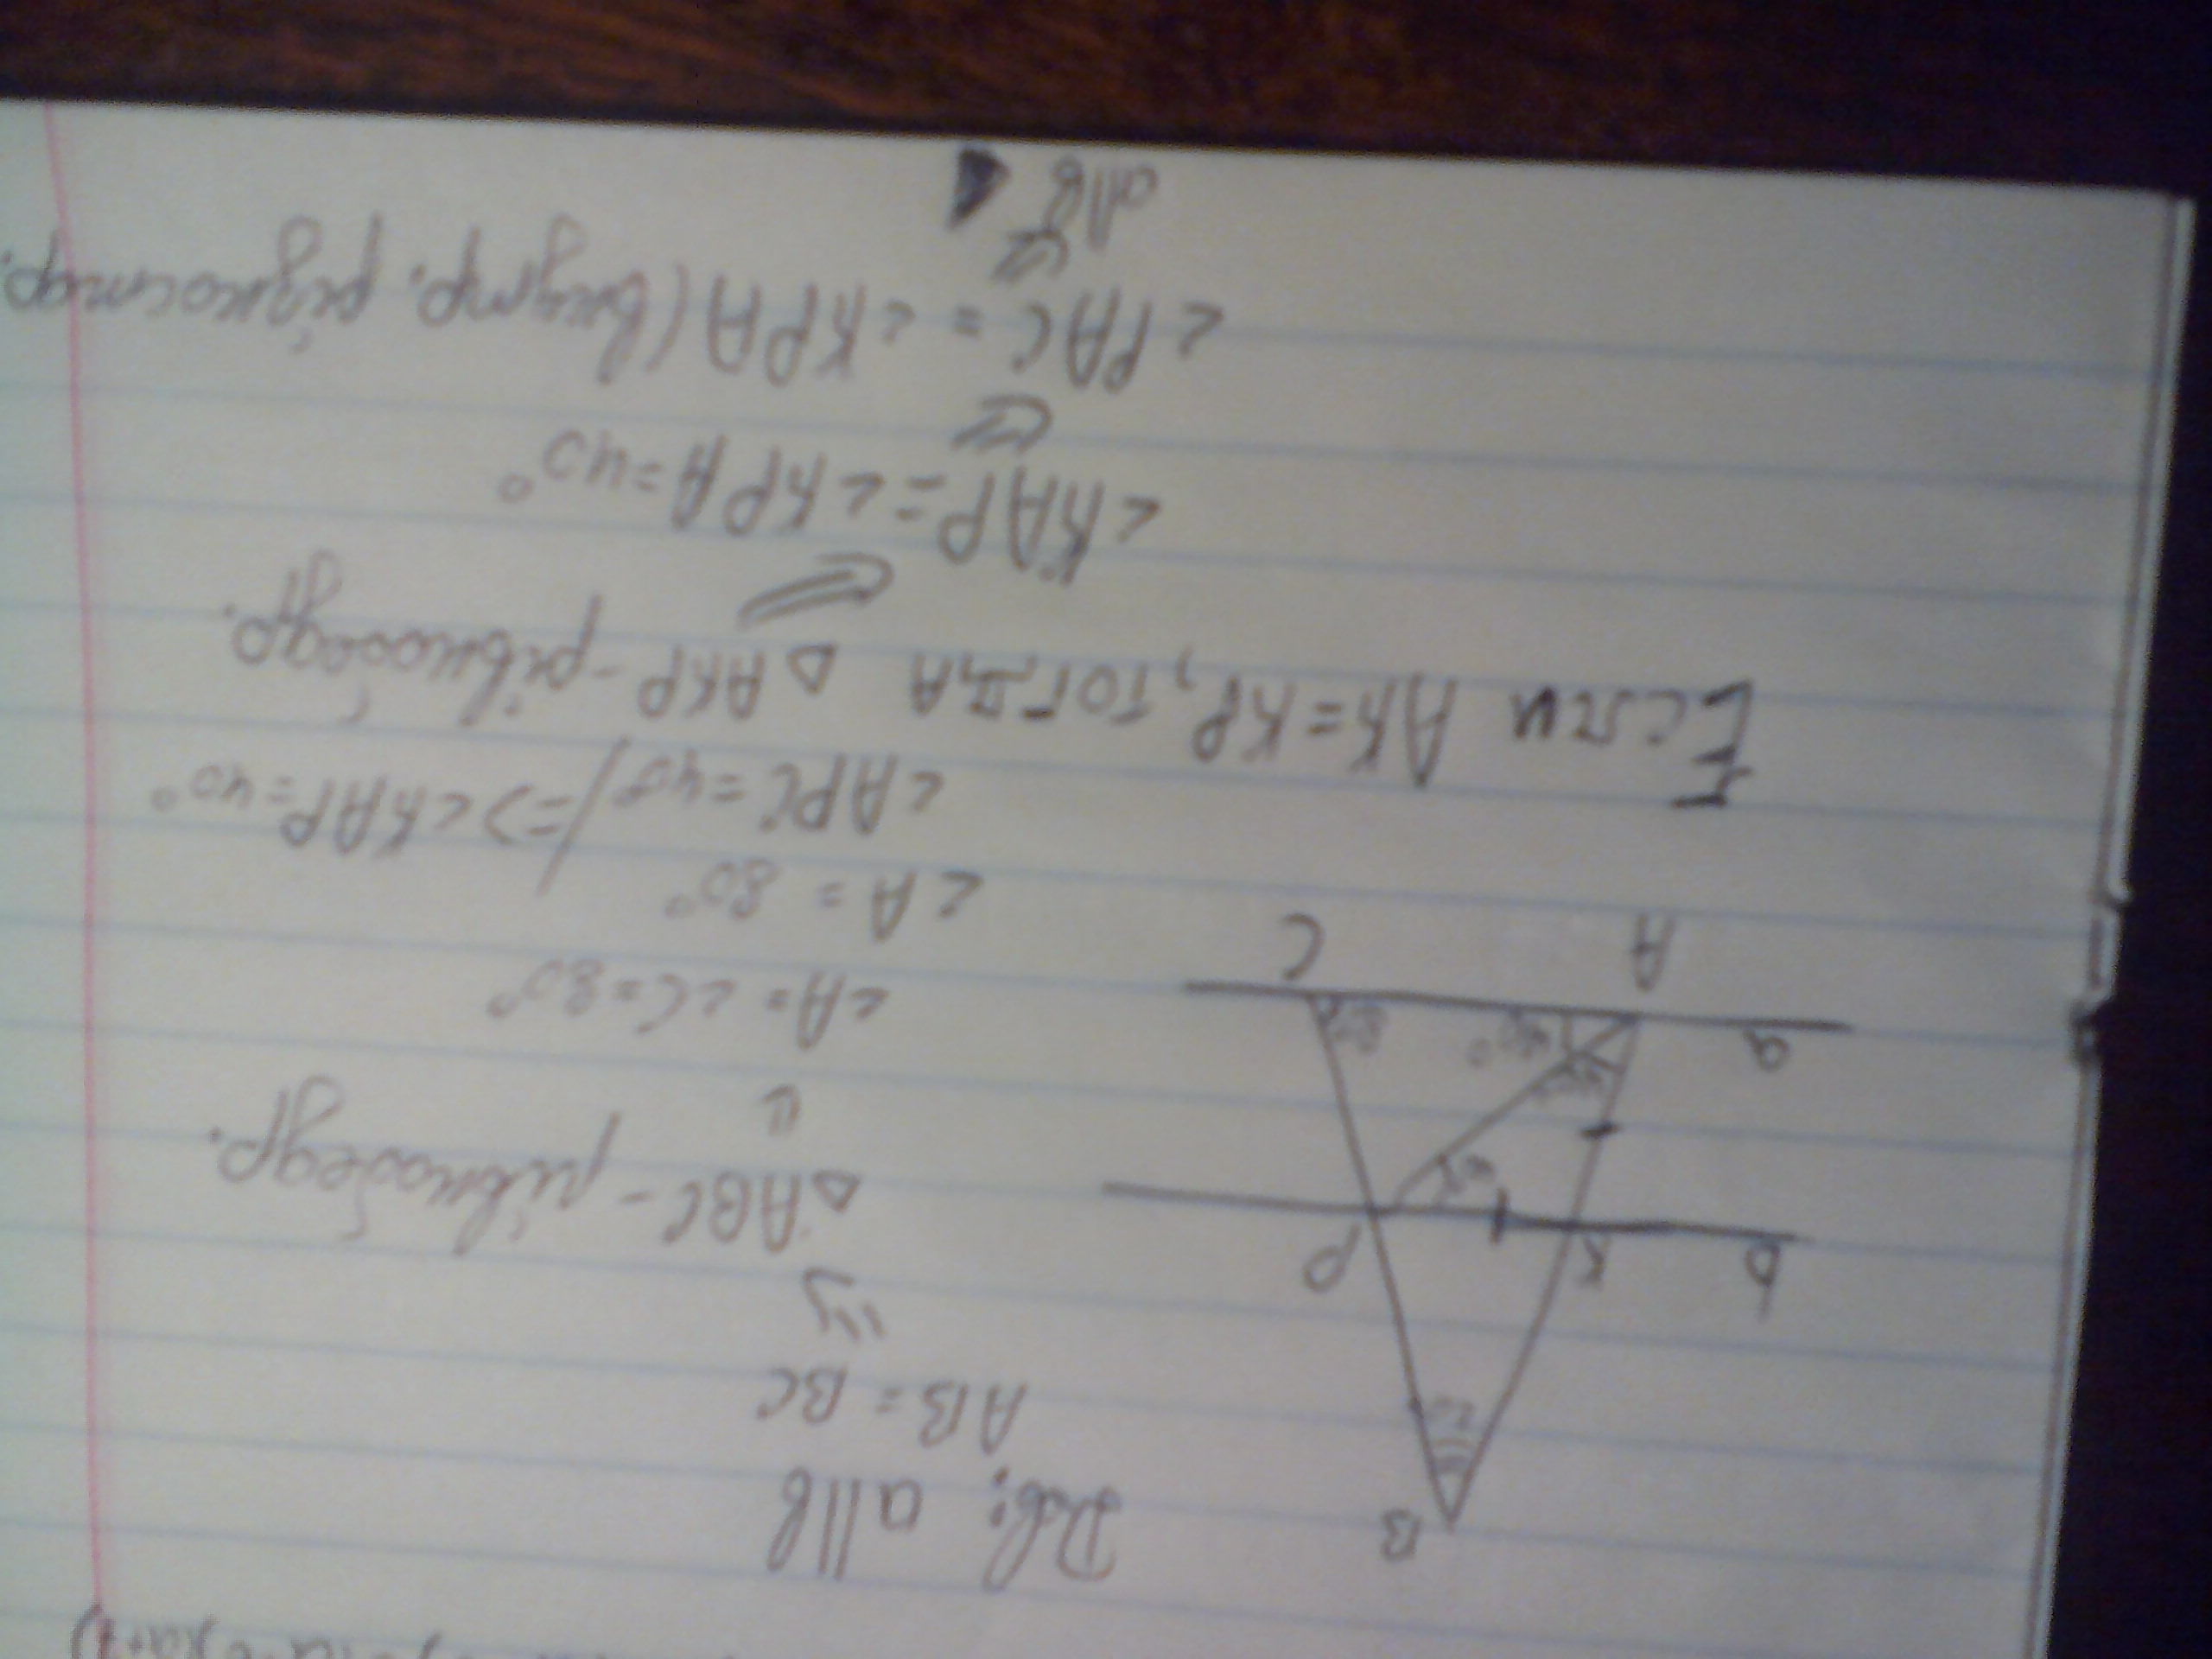 Дов: a||b
AB = BC
B
20°
ΔABC - рівнобедр.
b K P
∠A = ∠C = 80°
a 40° 80°
A C
∠A = 80°
∠APC = 40° => ∠KAP = 40°
Если AK = KP, тогда Δ AKP - рівнобедр.
∠KAP = ∠KPA = 40°
∠PAC = ∠KPA (внутр. різностор.
a||b